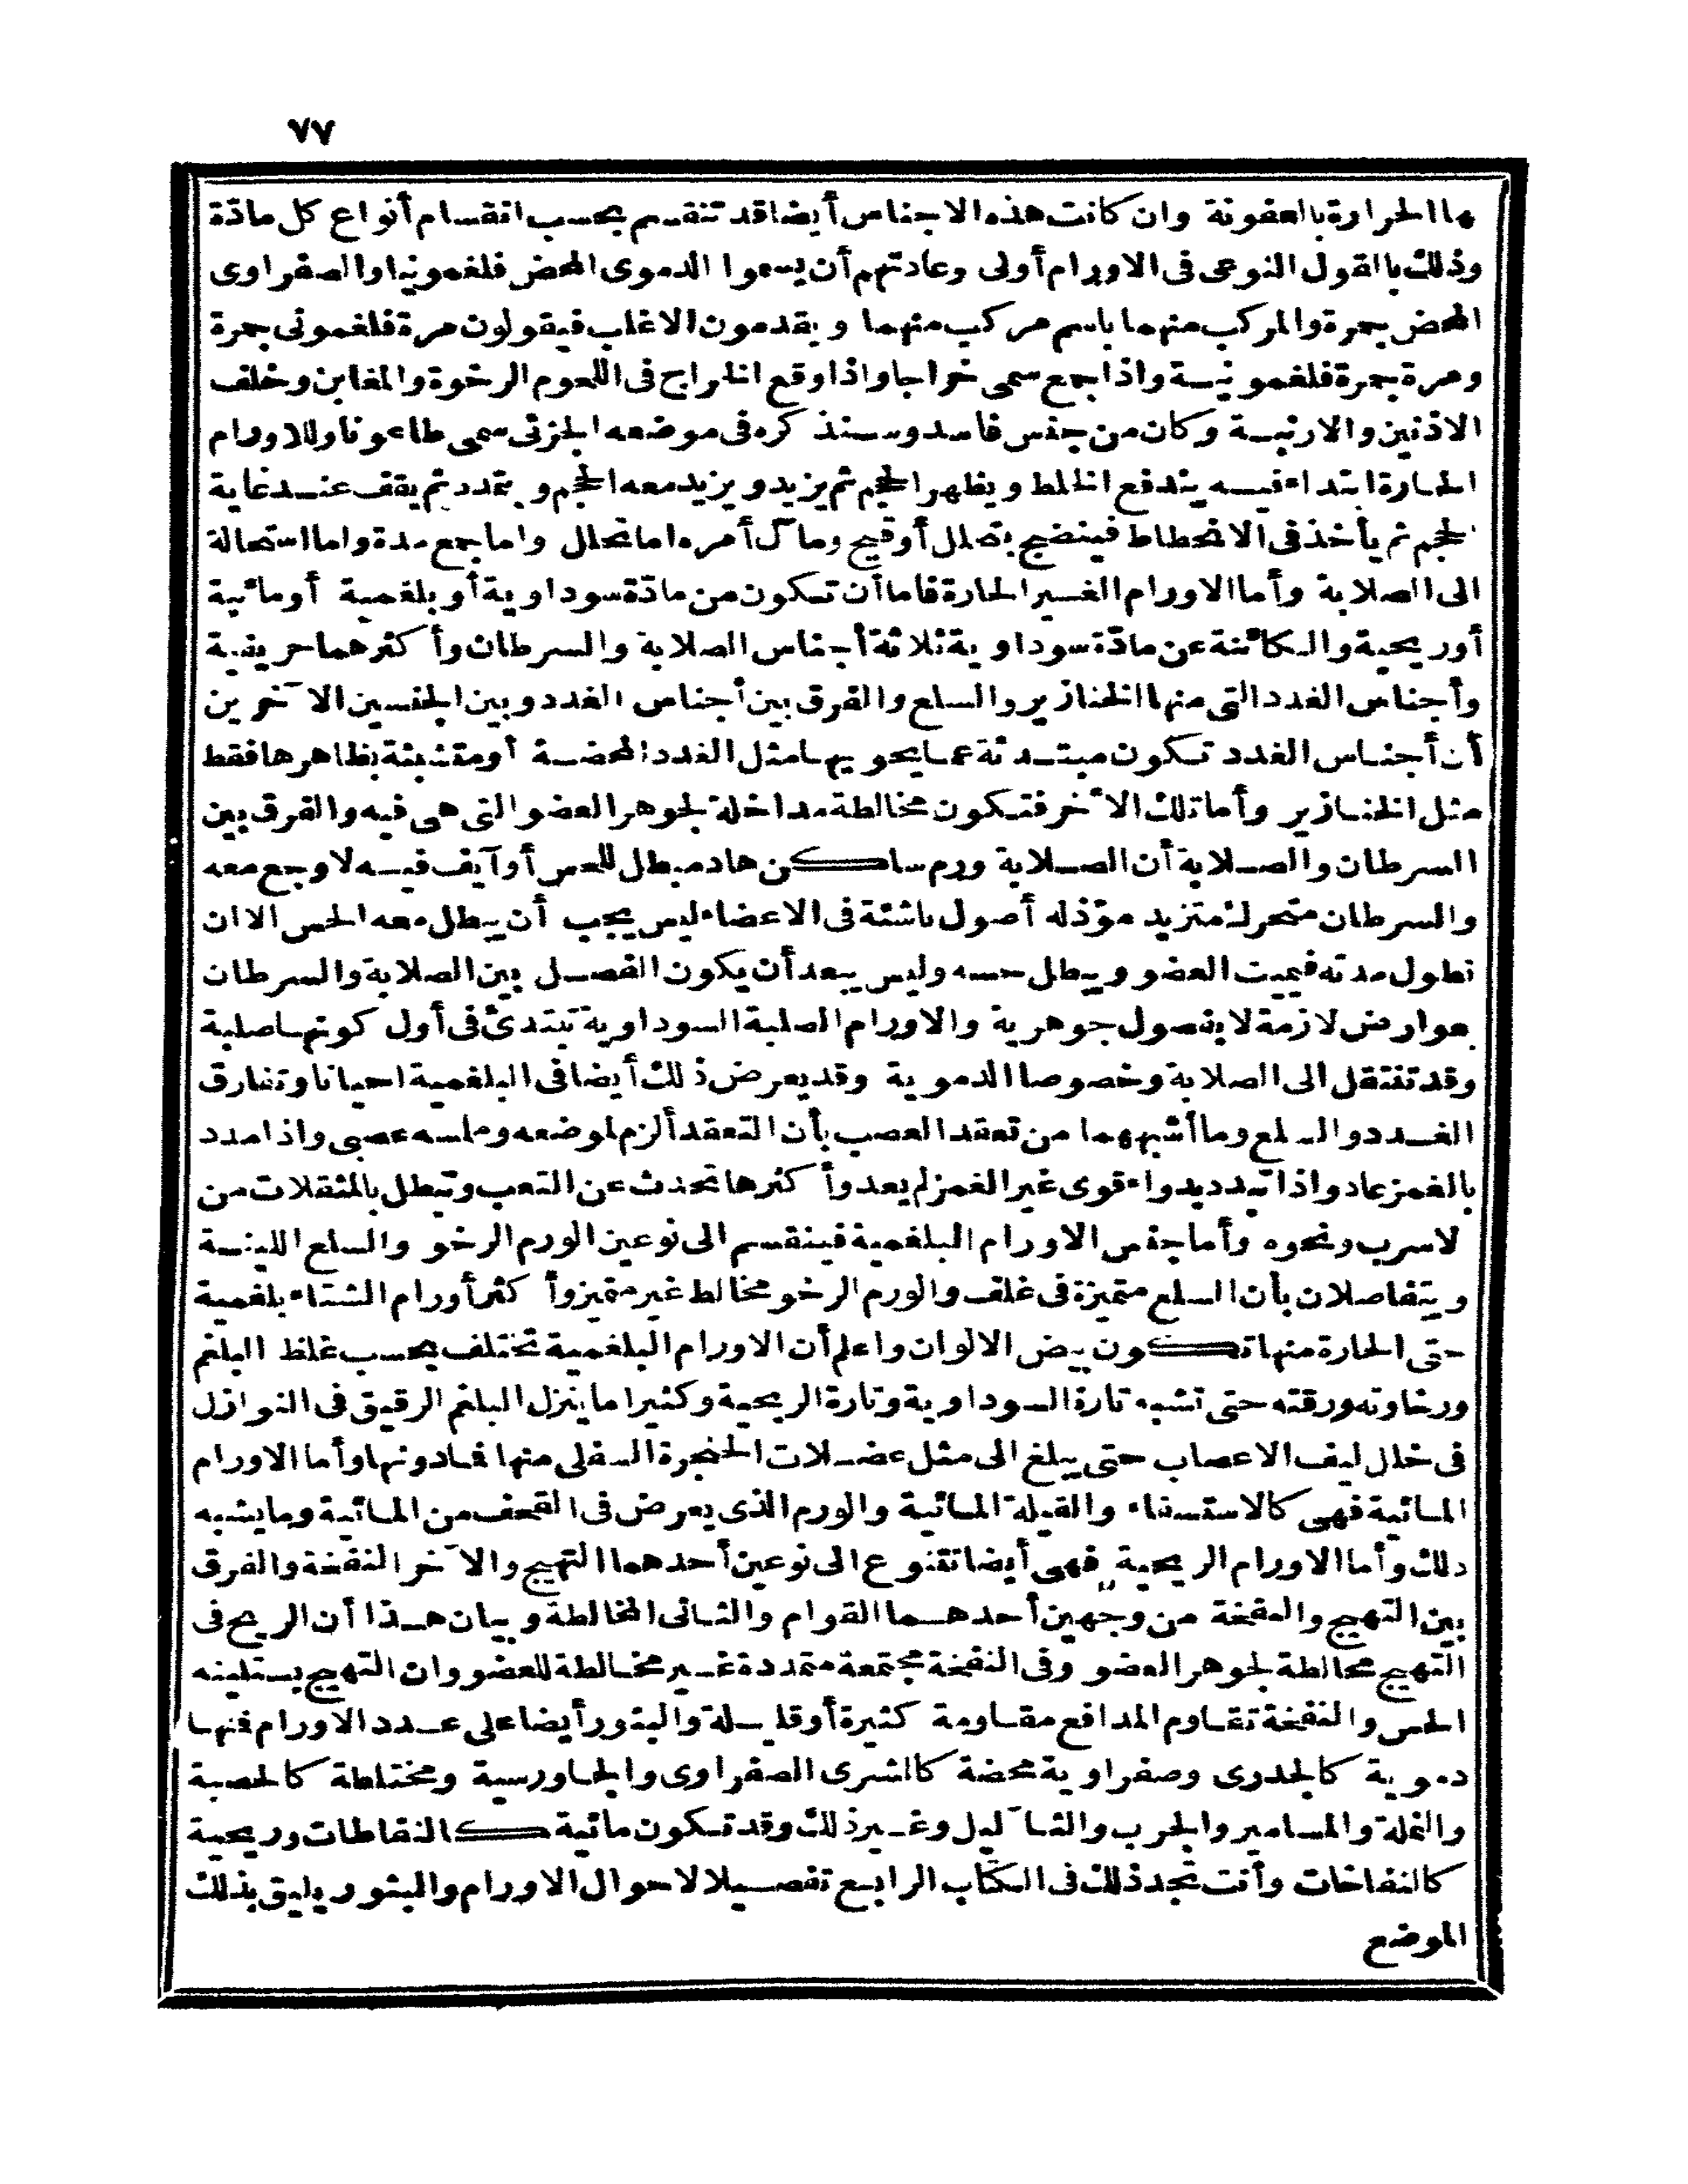 ٧٧
بها الحرارة بالعفونة وان كانت هذه الاجناس أيضا قد تنقسم بحسب انقسام أنواع كل مادّة
وذلك بالقول النوعى فى الاورام أولى وعادتهم أن يسموا الدموى المحض فلغمونيا والصفراوى
المحض بحمرة والمركب منهما باسم مركب منهما ويقدمون الاغلب فيقولون مرة فلغمونى بحمرة
ومرة بحمرة فلغمونيـة واذا جمع سمى خراجا واذا وقع الخراج فى اللحوم الرخوة والمغابن وخلف
الاذنين والارنبـة وكان من جنس فاسد وسـنذكره فى موضعه الجزئى سمى طاعونا وللاورام
الحـارة ابتداء فيـه يندفع الخلط ويظهر الحجم ثم يزيد ويزيد معه الحجم ويتمدد ثم يقف عنـد غاية
الحجم ثم يأخذ فى الانحطاط فينضج بتحلل أو قيح ومآل أمره اما تحلل واما جمع مدة واما استحالة
الى الصلابة وأما الاورام الغـير الحارة فاما أن تـكون من مادّة سوداوية أو بلغمية أو مائية
أو ريحية والـكائنة عن مادّة سوداوية ثلاثة أجناس الصلابة والسرطان وأكثرهما خريفية
وأجناس الغدد التى منها الخنازير والسلع والفرق بين أجناس الغدد وبين الجنسين الآخرين
أن أجنـاس الغدد تـكون مبتـدئة عمـا يحويهـا مثل الغدد المحضـة أو متشبثة بظاهرها فقط
مثل الخنـازير وأما تلك الأخر فتـكون مخالطة مداخلة لجوهر العضو التى هى فيه والفرق بين
السرطان والصـلابة أن الصـلابة ورم ساكن هاد مبطل للحس أو آيف فيـه لا وجع معه
والسرطان متحرك متزيد مؤذ له أصول ناشئة فى الاعضاء ليس يجب أن يبطل معه الحس الا ان
تطول مدته فيميت العضو ويبطل حسه وليس يبعد أن يكون الفصـل بين الصلابة والسرطان
بعوارض لازمة لا بفصول جوهرية والاورام الصلبة السوداوية تبتدئ فى أول كونهـا صلبة
وقد تنتقل الى الصلابة وخصوصا الدموية وقد يعرض ذلك أيضا فى البلغمية احيانا وتفارق
الغـدد والسلع وما أشبههما من تعقد العصب بأن التعقد ألزم لموضعه وملسه عصبى واذا مدد
بالغمز عاد واذا تبدد بدواء قوى غير الغمز لم يعد وأكثرها تحدث عن التعب وتبطل بالمثقلات من
الاسرب ونحوه وأما جنس الاورام البلغمية فينقسم الى نوعين الورم الرخو والسلع اللينـة
ويتفاصلان بأن السلع متميزة فى غلف والورم الرخو مخالط غير متميز وأكثر أورام الشتاء بلغمية
حتى الحارة منها تكون بيض الالوان واعلم أن الاورام البلغمية تختلف بحسب غلظ البلغم
ورخاوته ورقته حتى تشبه تارة السوداوية وتارة الريحية وكثيرا ما ينزل البلغم الرقيق فى النوازل
فى خلال ليف الاعصاب حتى يبلغ الى مثل عضـلات الحنجرة السفلى منها فمـا دونها وأما الاورام
المـائية فهى كالاستسقاء والقيلة المـائية والورم الذى يعرض فى القحف من المـائية وما يشبه
ذلك وأما الاورام الريحية فهى أيضا تتنوع الى نوعين أحدهما التهيج والآخر النفخة والفرق
بين التهيج والنفخة من وجهين أحدهـما القوام والثـانى المخالطة وبيان هـذا أن الريح فى
التهيج مخالطة لجوهر العضو وفى النفخة مجتمعة متمددة غـير مخـالطة للعضو وان التهيج يستلينه
الحس والنفخة تقـاوم المدافع مقـاومة كثيرة أو قليـلة والبثور أيضا على عـدد الاورام فنهـا
دموية كالجدرى وصفراوية محضة كالشرى الصفراوى والجـاورسية ومختلطة كالحصبة
والنملة والمسامير والجرب والثـآليل وغـير ذلك وقد تـكون مائية كالنفاطات وريحية
كالنفاخات وأنت تجد ذلك فى الـكتاب الرابـع تفصـيلا لاحوال الاورام والبثور يليق بذلك
الموضع